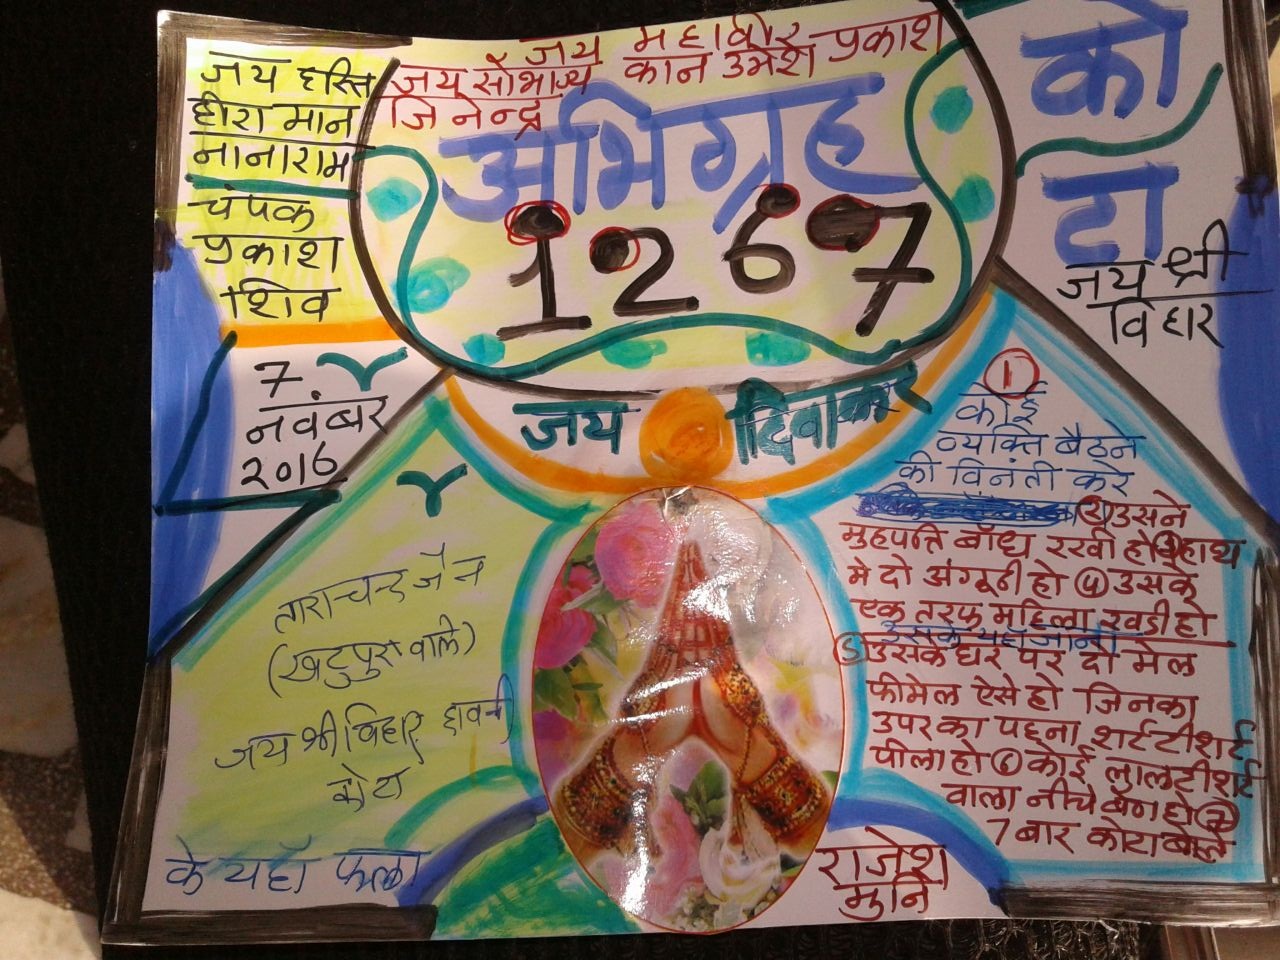 जय महावीर
जय सौभाग्य कान उमेश प्रकाश
जिनेन्द्र
अभिग्रह
1267
को
टा
जय श्री
विहार
जय हस्ति
हीरा मान
नानाराम
चंपक
प्रकाश
शिव
7
नवंबर
२०16
जय दिवाकर
ताराचन्द जैन
वाले)
जय श्री विहार
कोटा
के यहाँ फला
①
कोई
व्यक्ति बैठने
की विनंती करे
② उसने
मुहपत्ति बाँध रखी हो ③ हाथ
मे दो अंगूठी हो ④ उसके
एक तरफ महिला खडी हो
उसके यहाँ जाना
⑤ उसके घर पर दो मेल
फीमेल ऐसे हो जिनका
उपर का पहना शर्ट टीशर्ट
पीला हो ⑥ कोई लाल टीशर्ट
वाला नीचे बैग हो ⑦
7 बार कोटा बोले
राजेश
मुनि